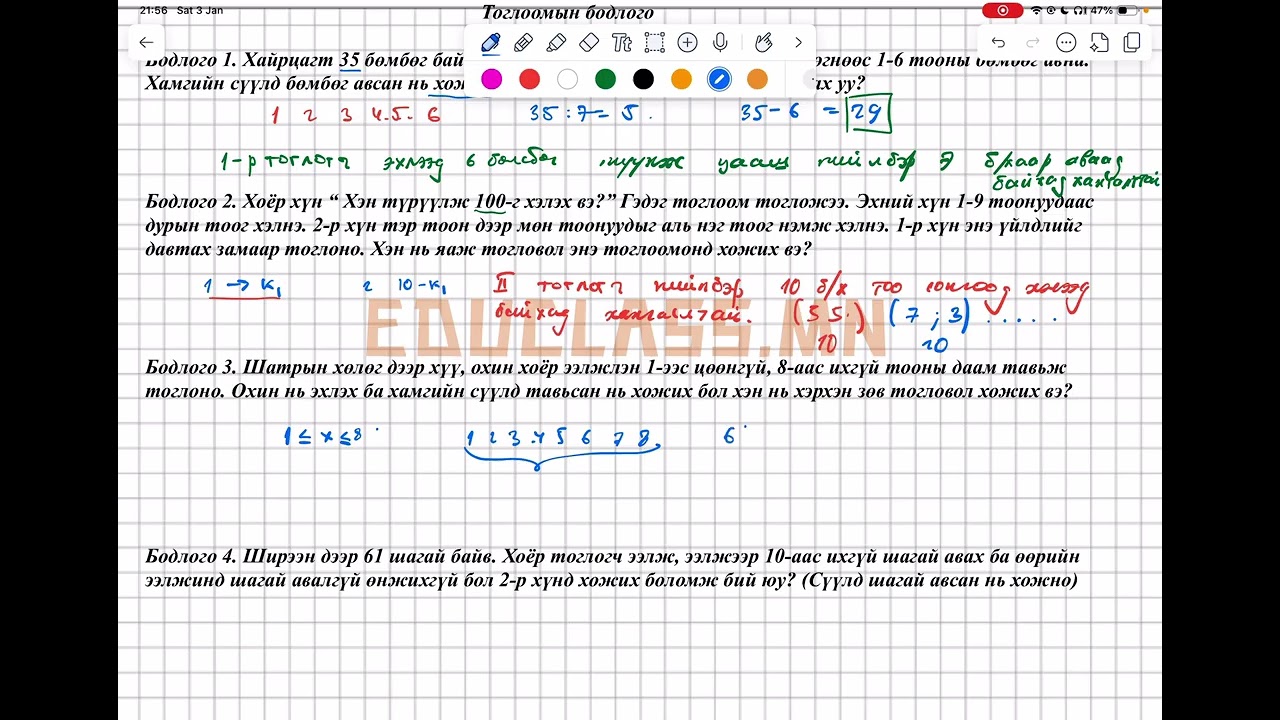 21:56 Sat 3 Jan
47%
Тоглоомын бодлого
Бодлого 1. Хайрцагт 35 бөмбөг бай 1-6 тооны бөмбөг авна.
Хамгийн сүүлд бөмбөг авсан нь хож их уу?
1 2 3 4.5. 6 35 : 7 = 5. 35 - 6 = 29
1-р тоглогч эхлээд 6 бөмбөг цааш нийлбэр 7 б/хаар аваад
байхад хангалттай
Бодлого 2. Хоёр хүн “ Хэн түрүүлж 100-г хэлэх вэ?” Гэдэг тоглоом тогложээ. Эхний хүн 1-9 тоонуудаас
дурын тоог хэлнэ. 2-р хүн тэр тоон дээр мөн тоонуудыг аль нэг тоог нэмж хэлнэ. 1-р хүн энэ үйлдлийг
давтах замаар тоглоно. Хэн нь яаж тогловол энэ тоглоомонд хожих вэ?
1 → K₁ 2 10 - K₁ II тоглогч нийлбэр 10 б/х тоо сонгоод хэлээд
байхад хангалттай. (5 5.) (7 ; 3) . . . . .
10 10
EDUCLASS.MN
Бодлого 3. Шатрын хөлөг дээр хүү, охин хоёр ээлжлэн 1-ээс цөөнгүй, 8-аас ихгүй тооны даам тавьж
тоглоно. Охин нь эхлэх ба хамгийн сүүлд тавьсан нь хожих бол хэн нь хэрхэн зөв тогловол хожих вэ?
1 ≤ x ≤ 8 . 1 2 3 .4 5 6 7 8, 6
Бодлого 4. Ширээн дээр 61 шагай байв. Хоёр тоглогч ээлж, ээлжээр 10-аас ихгүй шагай авах ба өөрийн
ээлжинд шагай авалгүй өнжихгүй бол 2-р хүнд хожих боломж бий юу? (Сүүлд шагай авсан нь хожно)